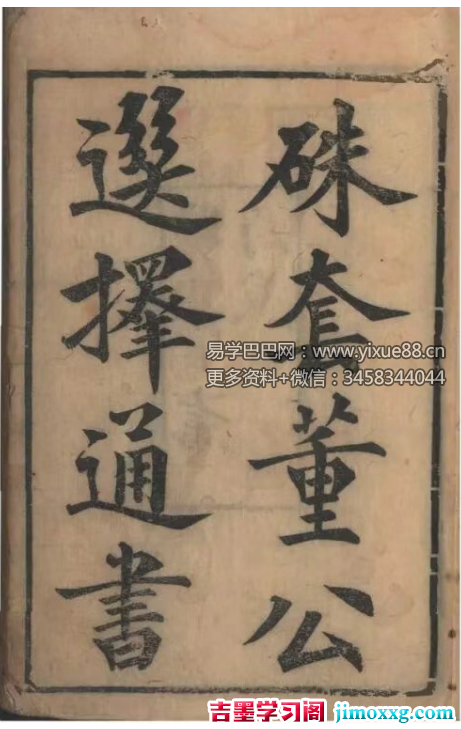 硃套董公
選擇通書
易学巴巴网：www.yixue88.cn
更多资料+微信：3458344044
吉墨学习阁 jimoxxg.com